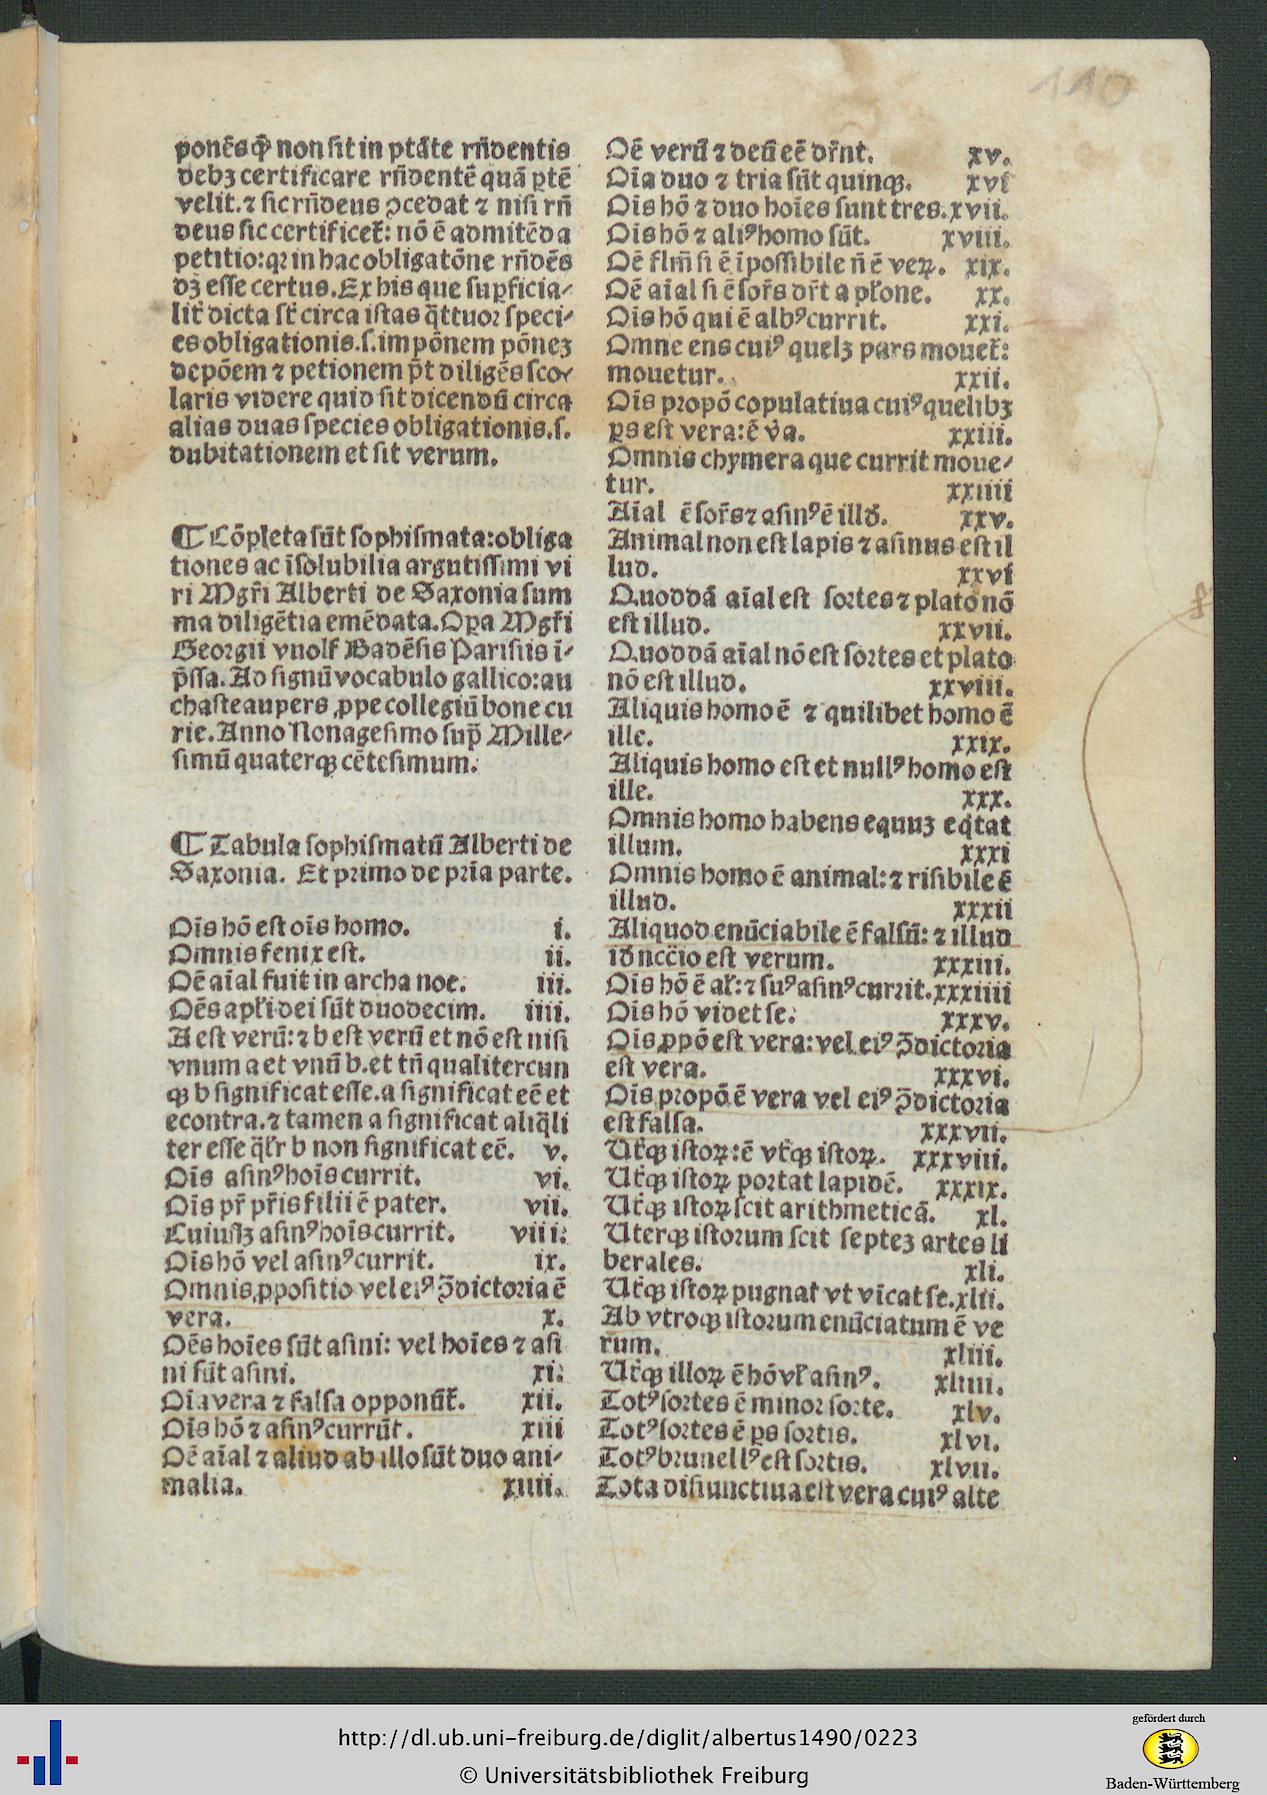 110
ponẽs ꝙ̃ non sit in ptãte rñdentis
debꝫ certificare rñdentẽ quã ꝑtẽ
velit. ⁊ sic rñdeus ꝯcedat ⁊ nisi rñ
deus sic certificet̃: nõ ẽ admitẽda
petitio: qꝛ in hac obligatõne rñdẽs
dꝫ esse certus. Ex his que suꝑficia⸗
lit̃ dicta st̃ circa istas q̃ttuor speci⸗
es obligationis.s. im põnem põneꝫ
depõem ⁊ petionem p̃t diligẽs sco⸗
laris videre quid sit dicendũ circa
alias duas species obligationis.s.
dubitationem et sit verum.
¶ Cõpleta sũt sophismata: obliga
tiones ac ĩsolubilia argutissimi vi
ri Mgr̃i Alberti de Saxonia sum
ma diligẽtia emẽdata. Oꝑa Mgr̃i
Georgii vuolf Badẽsis Parisiis ĩ⸗
p̃ssa. Ad signũ vocabulo gallico: au
chasteaupers ꝓpe collegiũ bone cu
rie. Anno Nonagesimo sup̃ Mille⸗
simũ quaterqꝫ cẽtesimum.
¶ Tabula sophismatũ Alberti de
Saxonia. Et primo de prĩa parte.
Oĩs hõ est oĩs homo. i.
Omnis fenix est. ii.
Oẽ aĩal fuit in archa noe. iii.
Oẽs apl̃i dei sũt duodecim. iiii.
A est verũ: ⁊ b est verũ et nõ est nisi
vnum a et vnũ b. et tñ qualitercun
qꝫ b significat esse. a significat eẽ et
econtra. ⁊ tamen a significat aliq̃li
ter esse q̃lr̃ b non significat eẽ. v.
Oĩs asinꝰ hoĩs currit. vi.
Oĩs pr̃ pr̃is filii ẽ pater. vii.
Cuiuslꝫ asinꝰ hoĩs currit. viii.
Oĩs hõ vel asinꝰ currit. ix.
Omnis ꝓpositio vel eiꝰ ꝯ̃dictoria ẽ
vera. x.
Oẽs hoĩes sũt asini: vel hoĩes ⁊ asi
ni sũt asini. xi.
Oĩa vera ⁊ falsa opponũt̃. xii.
Oĩs hõ ⁊ asinꝰ currũt. xiii
Oẽ aĩal ⁊ aliud ab illo sũt duo ani⸗
malia. xiiii.
Oẽ verũ ⁊ deũ eẽ dr̃nt. xv.
Oĩa duo ⁊ tria sũt quinqꝫ. xvi
Oĩs hõ ⁊ duo hoĩes sunt tres. xvii.
Oĩs hõ ⁊ aliꝰ homo sũt. xviii.
Oẽ flm̃ si ẽ ĩpossibile ñ ẽ veꝝ. xix.
Oẽ aĩal si ẽ sor̃s dr̃t a pl̃one. xx.
Oĩs hõ qui ẽ albꝰ currit. xxi.
Omne ens cuiꝰ quelꝫ pars mouet̃:
mouetur. xxii.
Oĩs propõ copulatiua cuiꝰ quelibꝫ
ꝑs est vera: ẽ ṽa. xxiii.
Omnis chymera que currit moue⸗
tur. xxiiii
Aĩal ẽ sor̃s ⁊ asinꝰ ẽ illd̃. xxv.
Animal non est lapis ⁊ asinus est il
lud. xxvi
Quoddã aĩal est sortes ⁊ plato nõ
est illud. xxvii.
Quoddã aĩal nõ est sortes et plato
nõ est illud. xxviii.
Aliquis homo ẽ ⁊ quilibet homo ẽ
ille. xxix.
Aliquis homo est et nullꝰ homo est
ille. xxx.
Omnis homo habens equuꝫ eq̃tat
illum. xxxi
Omnis homo ẽ animal: ⁊ risibile ẽ
illud. xxxii
Aliquod enũciabile ẽ falsũ: ⁊ illud
id̃ nccĩo est verum. xxxiii.
Oĩs hõ ẽ al̃: ⁊ suꝰ asinꝰ currit. xxxiiii
Oĩs hõ videt se. xxxv.
Oĩs ꝓpõ est vera: vel eiꝰ ꝯ̃dictoria
est vera. xxxvi.
Oĩs propõ ẽ vera vel eiꝰ ꝯ̃dictoria
est falsa. xxxvii.
Ut̃qꝫ istoꝝ: ẽ vt̃qꝫ istoꝝ. xxxviii.
Ut̃qꝫ istoꝝ portat lapidẽ. xxxix.
Ut̃qꝫ istoꝝ scit arithmeticã. xl.
Uterqꝫ istorum scit septeꝫ artes li
berales. xli.
Ut̃qꝫ istoꝝ pugnat̃ vt vĩcat se. xlii.
Ab vtroqꝫ istorum enũciatum ẽ ve
rum. xliii.
Ut̃qꝫ illoꝝ ẽ hõ vl̃ asinꝰ. xliiii.
Totꝰ sortes ẽ minor sorte. xlv.
Totꝰ sortes ẽ ꝑs sortis. xlvi.
Totꝰ brunellꝰ est sortis. xlvii.
Tota disiunctiua est vera cuiꝰ alte
http://dl.ub.uni-freiburg.de/diglit/albertus1490/0223
© Universitätsbibliothek Freiburg
gefördert durch
Baden-Württemberg